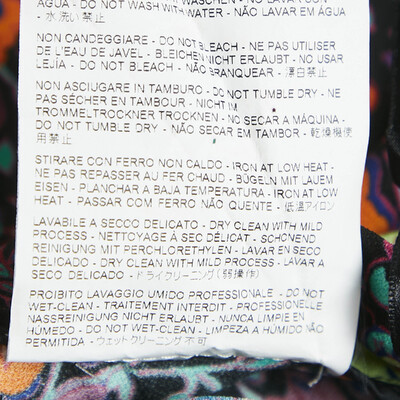 AGUA - DO NOT WASH WITH WATER - NÃO LAVAR EM ÁGUA
- 水洗い禁止
NON CANDEGGIARE - DO NOT BLEACH - NE PAS UTILISER
DE L'EAU DE JAVEL - BLEICHEN NICHT ERLAUBT - NO USAR
LEJÍA - DO NOT BLEACH - NÃO BRANQUEAR - 漂白禁止
NON ASCIUGARE IN TAMBURO - DO NOT TUMBLE DRY - NE
PAS SÉCHER EN TAMBOUR - NICHT IM
TROMMELTROCKNER TROCKNEN - NO SECAR A MÁQUINA -
DO NOT TUMBLE DRY - NÃO SECAR EM TAMBOR - 乾燥機使
用禁止
STIRARE CON FERRO NON CALDO - IRON AT LOW HEAT -
NE PAS REPASSER AU FER CHAUD - BÜGELN MIT LAUEM
EISEN - PLANCHAR A BAJA TEMPERATURA - IRON AT LOW
HEAT - PASSAR COM FERRO NÃO QUENTE - 低温アイロン
LAVABILE A SECCO DELICATO - DRY CLEAN WITH MILD
PROCESS - NETTOYAGE À SEC DÉLICAT - SCHONEND
REINIGUNG MIT PERCHLORETHYLEN - LAVAR EN SECO
DELICADO - DRY CLEAN WITH MILD PROCESS - LAVAR A
SECO DELICADO - ドライクリーニング (弱操作)
PROIBITO LAVAGGIO UMIDO PROFESSIONALE - DO NOT
WET-CLEAN - TRAITEMENT INTERDIT - PROFESSIONELLE
NASSREINIGUNG NICHT ERLAUBT - NUNCA LIMPIE EN
HÚMEDO - DO NOT WET-CLEAN - LIMPEZA A HÚMIDO NÃO
PERMITIDA - ウェットクリーニング 不可